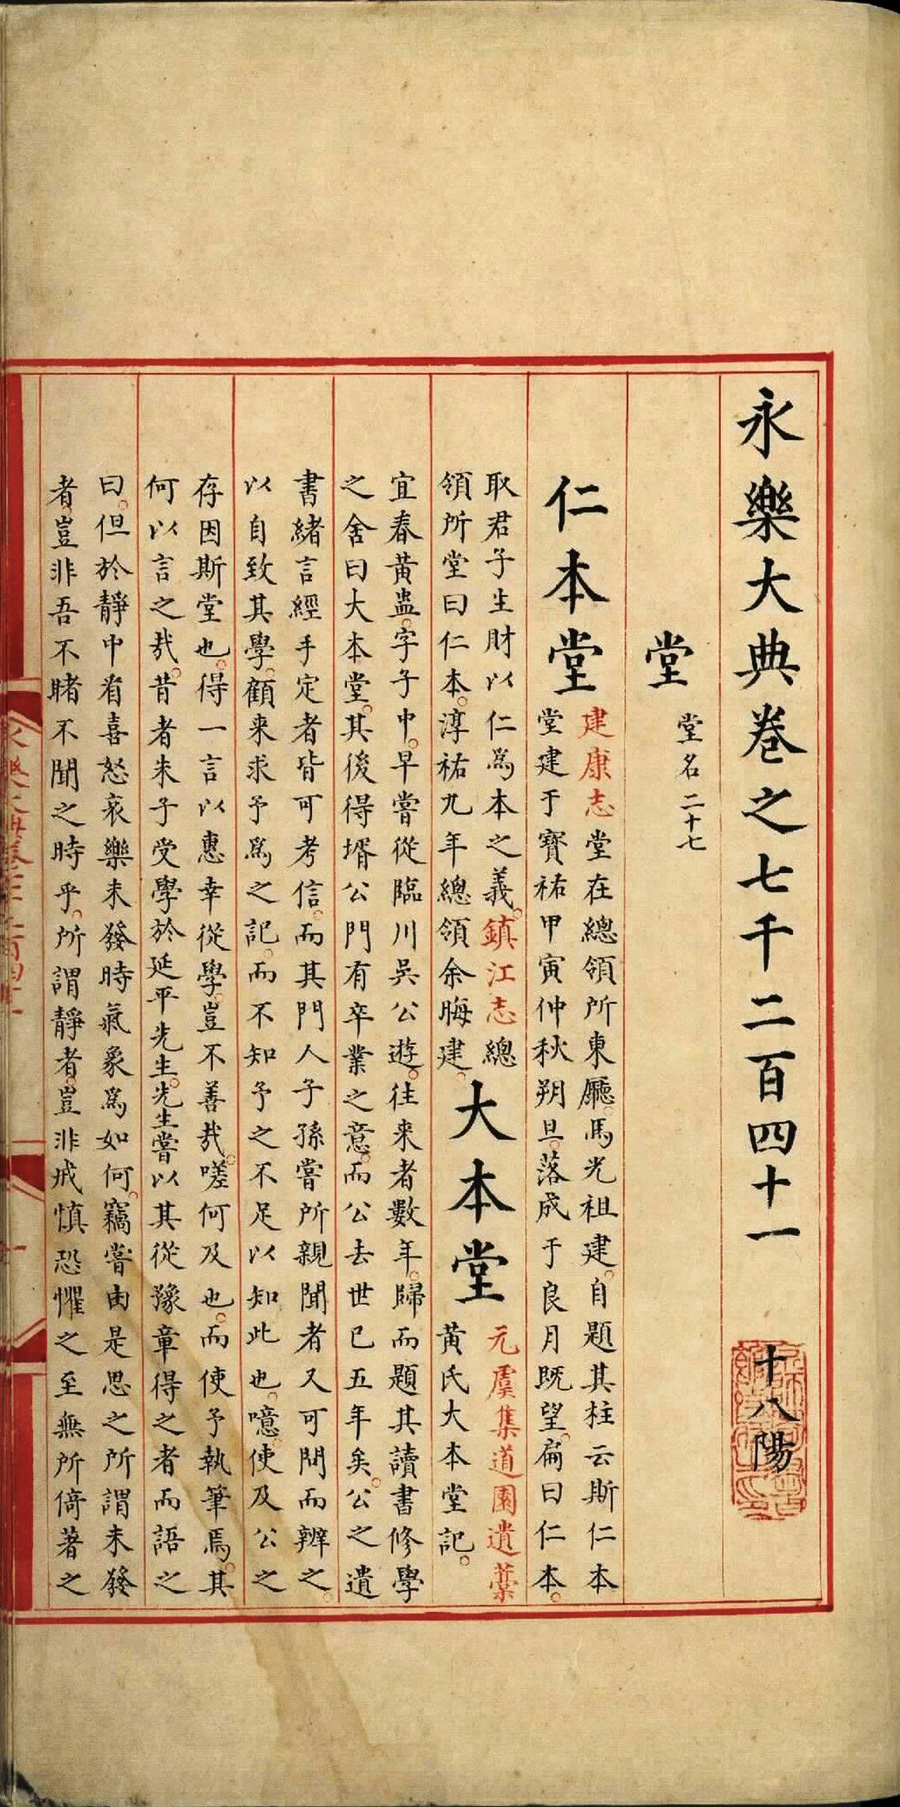 永樂大典卷之七千二百四十一
十八陽
堂
堂名二十七
仁本堂
建康志堂在總領所東廳。馬光祖建。自題其柱云斯仁本
堂建于寶祐甲寅仲秋朔旦。落成于良月既望。扁曰仁本。
取君子生財以仁為本之義。鎮江志總
領所堂曰仁本。淳祐九年總領余晦建。
大本堂
元虞集道園遺藁
黃氏大本堂記。
宜春黃盅。字子中。早嘗從臨川吳公遊。往來者數年。歸而題其讀書修學
之舍曰大本堂。其後得壻公門有卒業之意。而公去世已五年矣。公之遺
書緒言經手定者皆可考信。而其門人子孫嘗所親聞者又可問而辨之。
以自致其學。顧來求予為之記。而不知予之不足以知此也。噫。使及公之
存因斯堂也。得一言以惠幸從學。豈不善哉。嗟何及也。而使予執筆焉。其
何以言之哉。昔者朱子受學於延平先生。先生嘗以其從豫章得之者而語之
曰。但於靜中看喜怒哀樂未發時氣象為如何。竊嘗由是思之所謂未發
者。豈非吾不睹不聞之時乎。所謂靜者。豈非戒慎恐懼之至無所倚著之